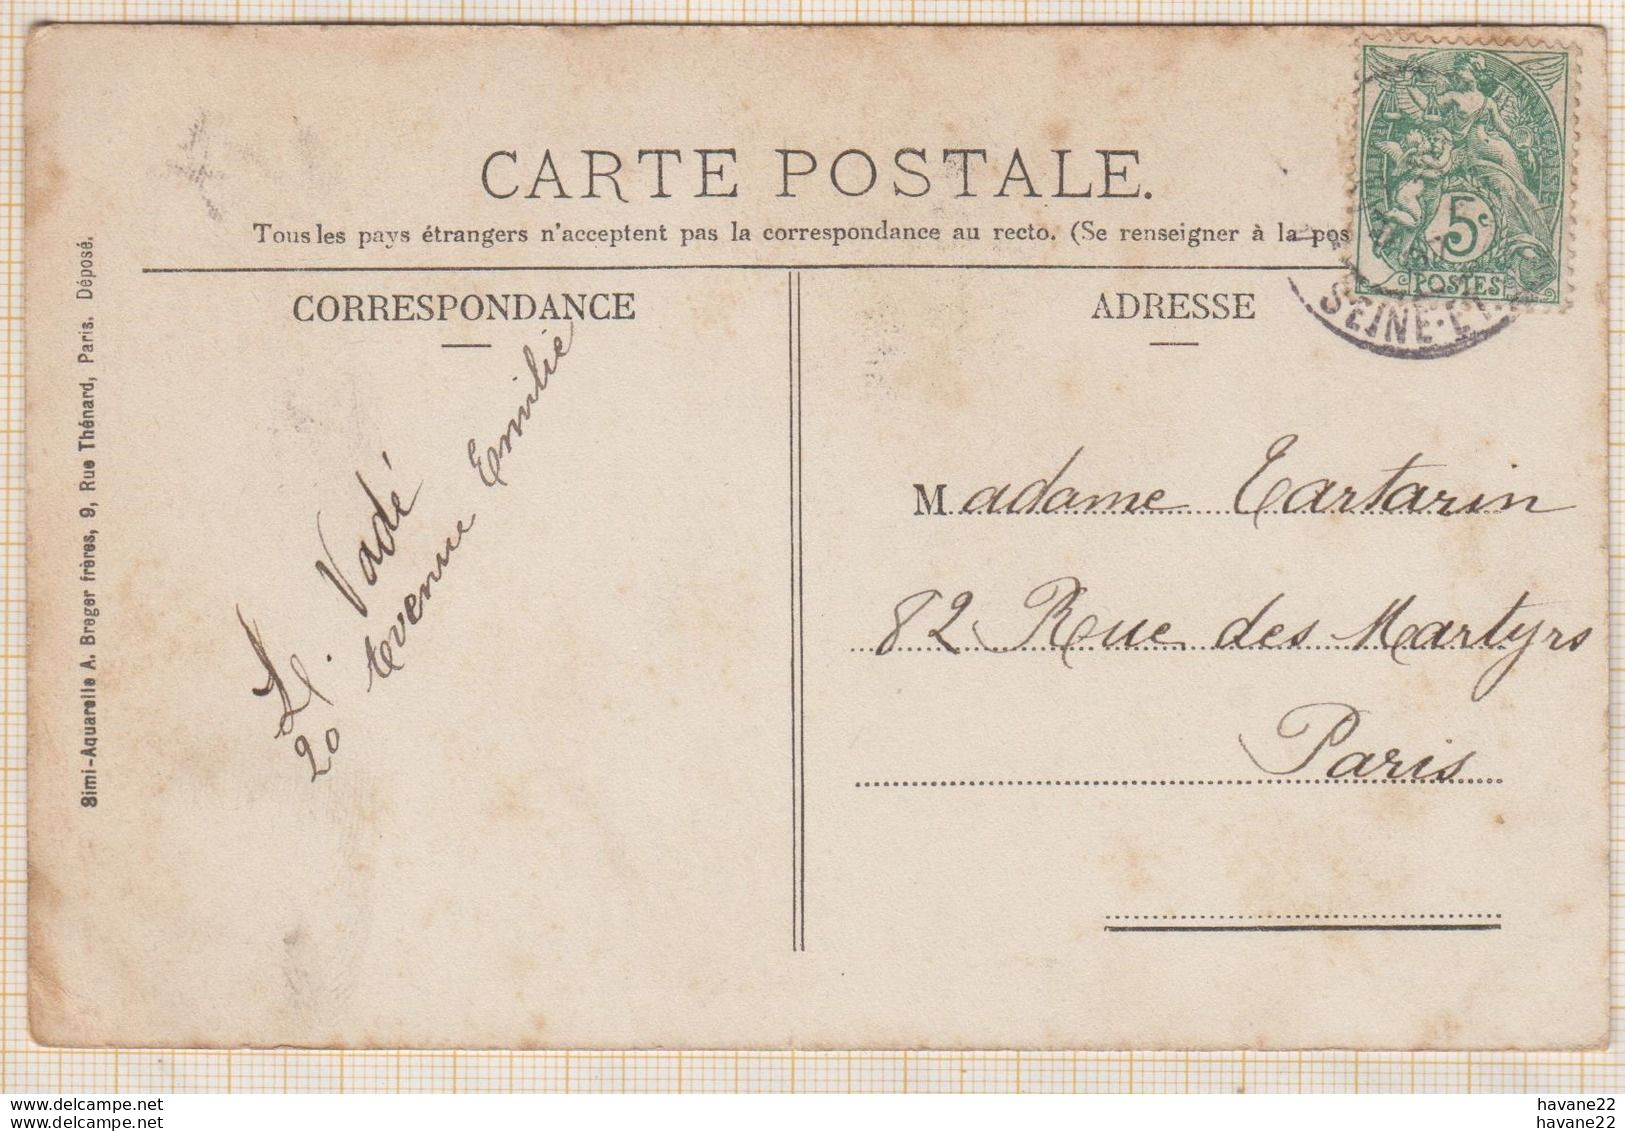 CARTE POSTALE.
Tous les pays étrangers n'acceptent pas la correspondance au recto. (Se renseigner à la pos
CORRESPONDANCE
L. Vadé
20 Avenue Emilie
ADRESSE
Madame Tartarin
82 Rue des Martyrs
Paris
Simi-Aquarelle A. Breger frères, 9, Rue Thénard, Paris. Déposé.
5c
POSTES
SEINE-ET-
www.delcampe.net
havane22
havane22